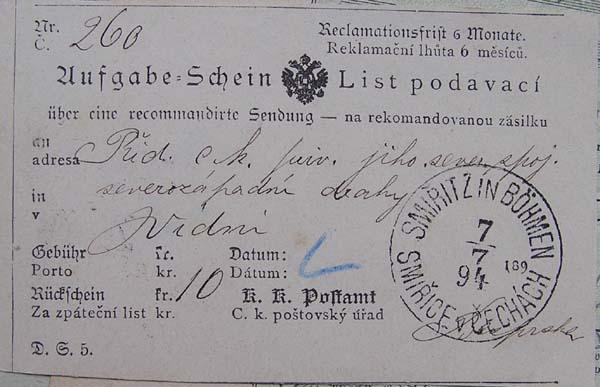 Nr. Č. 260 Reclamationsfrist 6 Monate.
Reklamační lhůta 6 měsíců.
Aufgabe-Schein List podavací
über eine recommandirte Sendung — na rekomandovanou zásilku
an
adresa Řid. c. k. priv. jiho. sever. spoj.
in severozápadní drahy
v Vídni
Gebühr kr. Datum:
Porto kr. Dátum:
Rückschein kr. 10 K. K. Postamt
Za zpáteční list kr. C. k. poštovský úřad
D. S. 5.
SMIRITZ IN BÖHMEN
7
7
94 189
SMIŘICE v ČECHÁCH